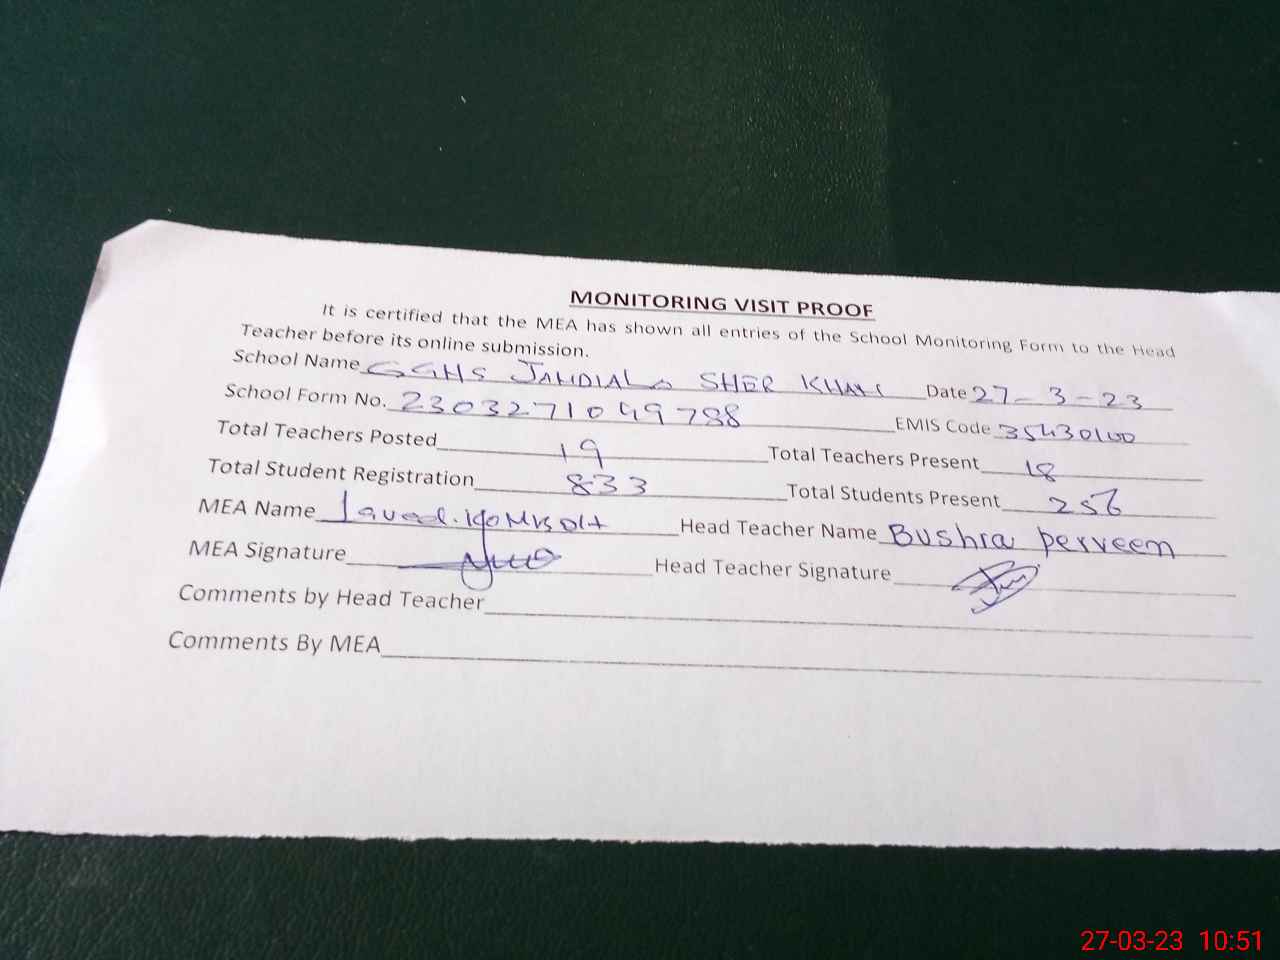 MONITORING VISIT PROOF
It is certified that the MEA has shown all entries of the School Monitoring Form to the Head
Teacher before its online submission.
School Name GGHS JANDIALA SHER KHAN Date 27-3-23
School Form No. 2303271049788 EMIS Code 35430100
Total Teachers Posted 19 Total Teachers Present 18
Total Student Registration 833 Total Students Present 256
MEA Name Javed Head Teacher Name Bushra perveen
MEA Signature Head Teacher Signature
Comments by Head Teacher
Comments By MEA
27-03-23 10:51